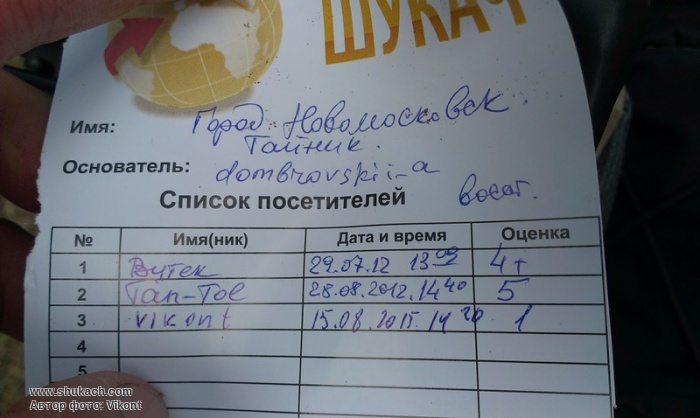 ШУКАЧ
Имя: Город Новомосковск
Тайник.
Основатель: dombrovskii-a
Список посетителей
№ Имя(ник) Дата и время Оценка
1 Вутек 29.07.12 13 4+
2 Тап-Tol 28.08.2012. 14 40 5
3 vikont 15.08.2015. 14 20 1
4
5
www.shukach.com
Автор фото: Vikont